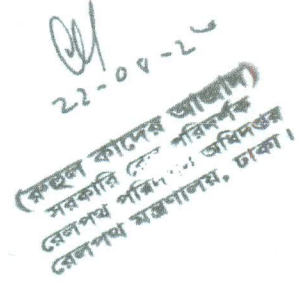 (রুহুল কাদের আজাদ)
সরকারি রেল পরিদর্শক
রেলপথ পরিদর্শন অধিদপ্তর
রেলপথ মন্ত্রণালয়, ঢাকা।